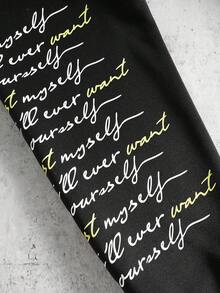 myself
ll ever want
ourself
st myself
'll ever want
ourself
st myself
'll ever want
yourself
st myself
'll ever want
yourself